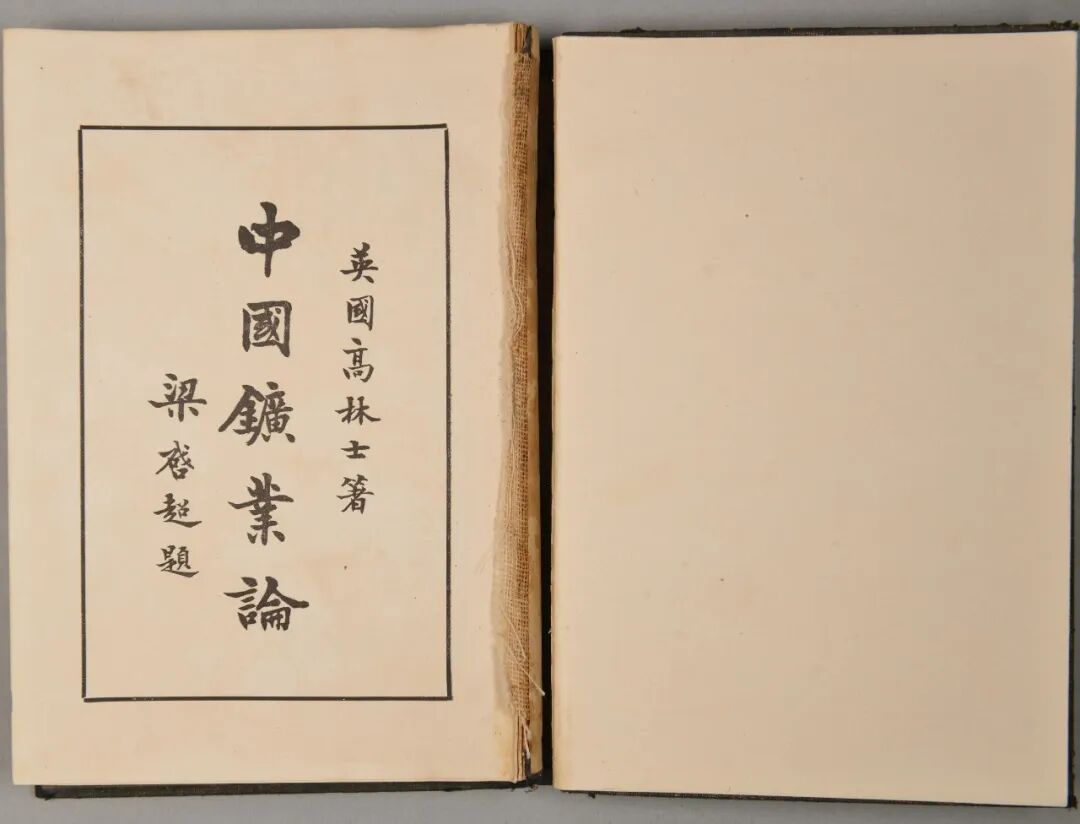 英國高林士箸
中國鑛業論
梁啓超題